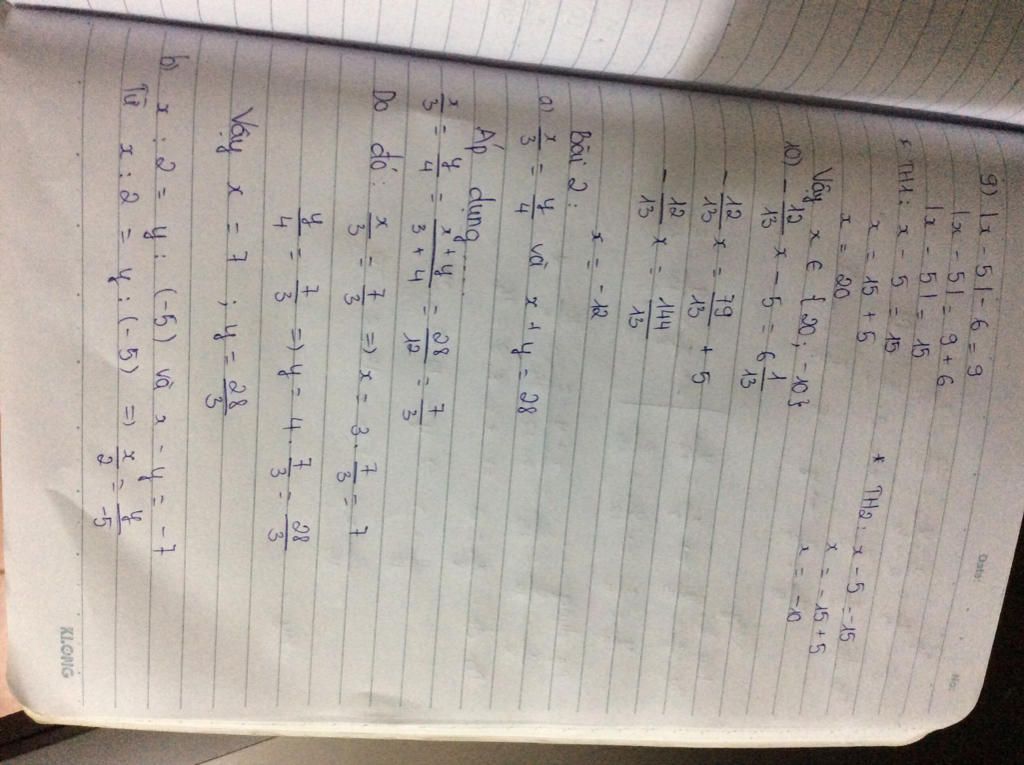 Date: No:
9) |x - 5| - 6 = 9
|x - 5| = 9 + 6
|x - 5| = 15
* TH1: x - 5 = 15 * TH2: x - 5 = -15
x = 15 + 5 x = -15 + 5
x = 20 x = -10
Vậy x ∈ {20; -10}
10) -12/13 x - 5 = 6 1/13
-12/13 x = 79/13 + 5
-12/13 x = 144/13
x = -12
Bài 2:
a) x/3 = y/4 và x + y = 28
Áp dụng......
x/3 = y/4 = x+y/3+4 = 28/12 = 7/3
Do đó: x/3 = 7/3 => x = 3 . 7/3 = 7
y/4 = 7/3 => y = 4 . 7/3 = 28/3
Vậy x = 7 ; y = 28/3
b) x : 2 = y : (-5) và x - y = -7
Từ x : 2 = y : (-5) => x/2 = y/-5
KLONG